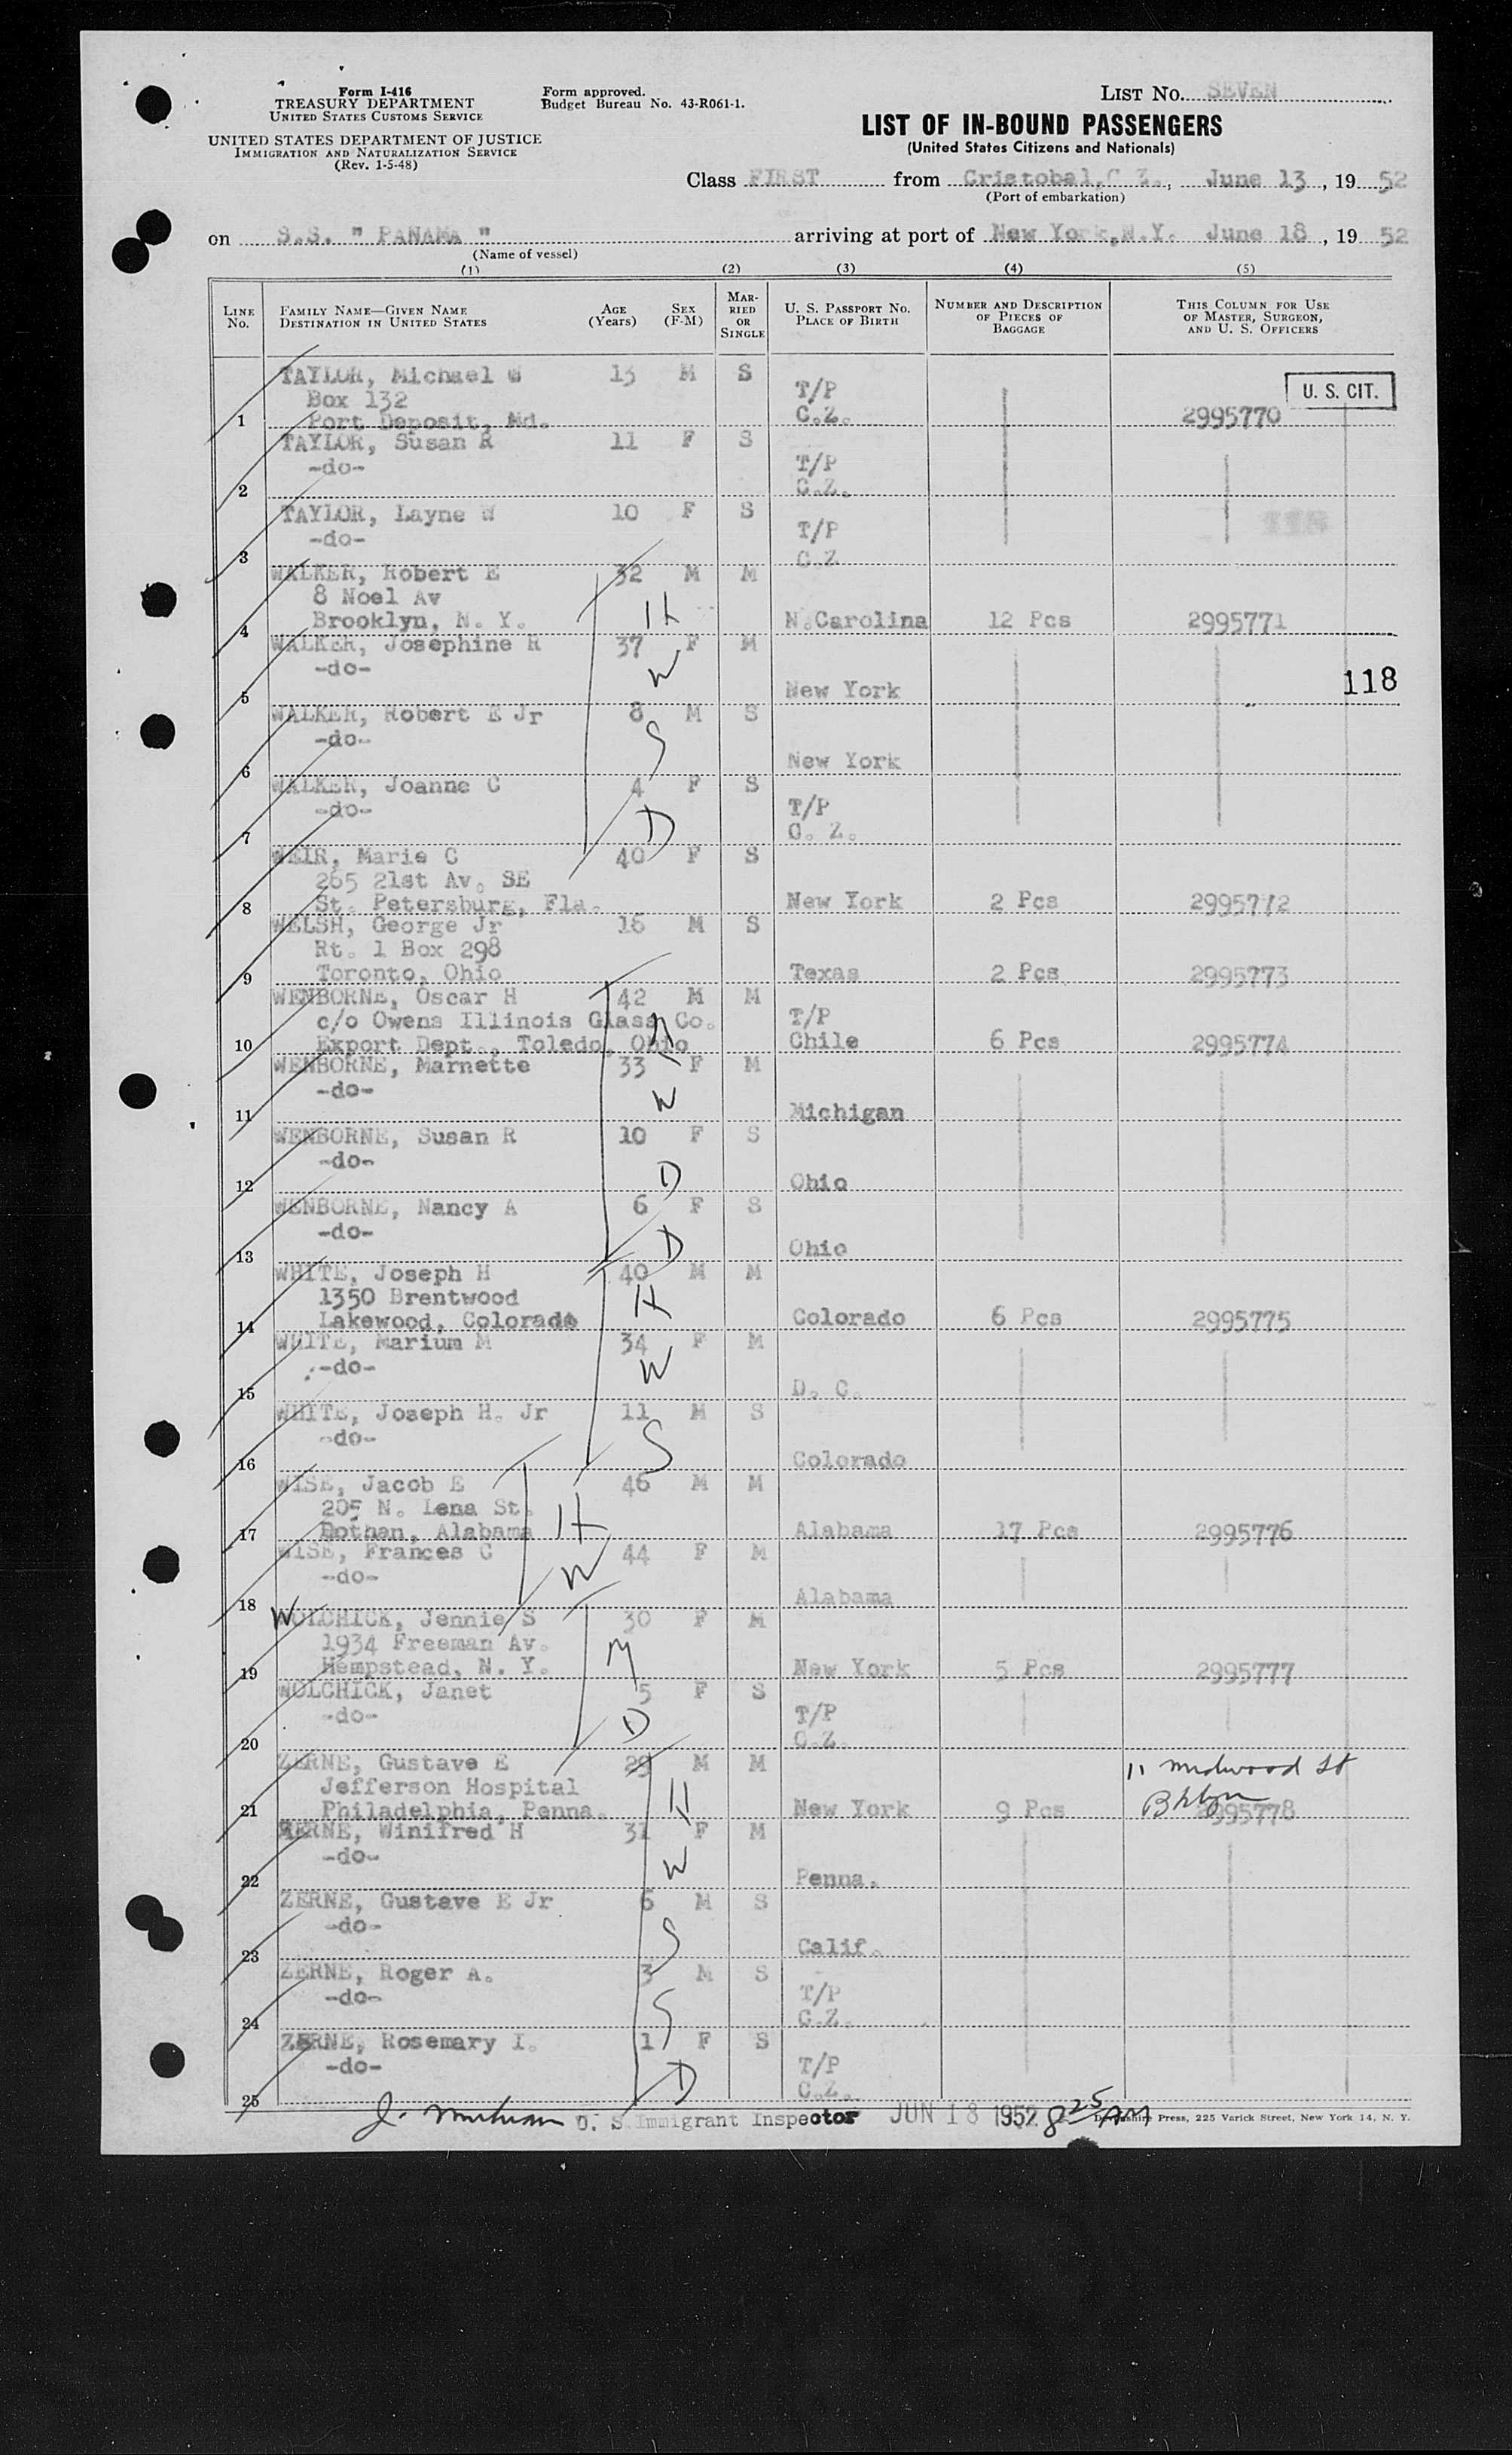 Form I-416
TREASURY DEPARTMENT
UNITED STATES CUSTOMS SERVICE
UNITED STATES DEPARTMENT OF JUSTICE
IMMIGRATION AND NATURALIZATION SERVICE
(Rev. 1-5-48)
Form approved.
Budget Bureau No. 43-R061-1.
LIST No. SEVEN
LIST OF IN-BOUND PASSENGERS
(United States Citizens and Nationals)
Class FIRST from Cristobal,C Z., June 13, 19 52
(Port of embarkation)
on S.S. " PANAMA " arriving at port of New York,N.Y. June 18, 19 52
(Name of vessel)
(1) (2) (3) (4) (5)
LINE No. FAMILY NAME—GIVEN NAME DESTINATION IN UNITED STATES AGE (Years) SEX (F-M) MARRIED OR SINGLE U. S. PASSPORT No. PLACE OF BIRTH NUMBER AND DESCRIPTION OF PIECES OF BAGGAGE THIS COLUMN FOR USE OF MASTER, SURGEON, AND U. S. OFFICERS
TAYLOR, Michael W 13 M S
Box 132 T/P U. S. CIT.
1 Port Deposit, Md. C.Z. 2995770
TAYLOR, Susan R 11 F S
-do- T/P
2 C.Z.
TAYLOR, Layne W 10 F S
-do- T/P 118
3 C.Z
WALKER, Robert E 32 M M
8 Noel Av H
4 Brooklyn, N. Y. N.Carolina 12 Pcs 2995771
WALKER, Josephine R 37 F M
-do- W 118
5 New York
WALKER, Robert E Jr 8 M S
-do- S
6 New York
WALKER, Joanne C 4 F S
-do- D T/P
7 C. Z.
WEIR, Marie C 40 F S
265 21st Av. SE
8 St. Petersburg, Fla. New York 2 Pcs 2995772
WELSH, George Jr 16 M S
Rt. 1 Box 298
9 Toronto, Ohio Texas 2 Pcs 2995773
WENBORNE, Oscar H 42 M M
c/o Owens Illinois Glass Co. H T/P
10 Export Dept., Toledo, Ohio Chile 6 Pcs 2995774
WENBORNE, Marnette 33 F M
-do- W
11 Michigan
WENBORNE, Susan R 10 F S
-do- D
12 Ohio
WENBORNE, Nancy A 6 F S
-do- D
13 Ohio
WHITE, Joseph H 40 M M
1350 Brentwood H
14 Lakewood, Colorado Colorado 6 Pcs 2995775
WHITE, Marium M 34 F M
-do- W
15 D. C.
WHITE, Joseph H. Jr 11 M S
-do- S
16 Colorado
WISE, Jacob E 46 M M
205 N. Lena St. H
17 Dothan, Alabama Alabama 17 Pcs 2995776
WISE, Frances C 44 F M
-do- W
18 Alabama
WOLCHICK, Jennie S 30 F M
1934 Freeman Av. M
19 Hempstead, N. Y. New York 5 Pcs 2995777
WOLCHICK, Janet 5 F S
-do- D T/P
20 C.Z.
ZERNE, Gustave E 29 M M 11 Midwood St
Jefferson Hospital H Bklyn
21 Philadelphia, Penna. New York 9 Pcs 2995778
ZERNE, Winifred H 31 F M
-do- W
22 Penna.
ZERNE, Gustave E Jr 6 M S
-do- S
23 Calif.
ZERNE, Roger A. 3 M S
-do- S T/P
24 C.Z.
ZERNE, Rosemary I. 1 F S
-do- D T/P
25 C.Z.
J. U. S. Immigrant Inspector JUN 18 1952 8 25 AM Press, 225 Varick Street, New York 14, N. Y.